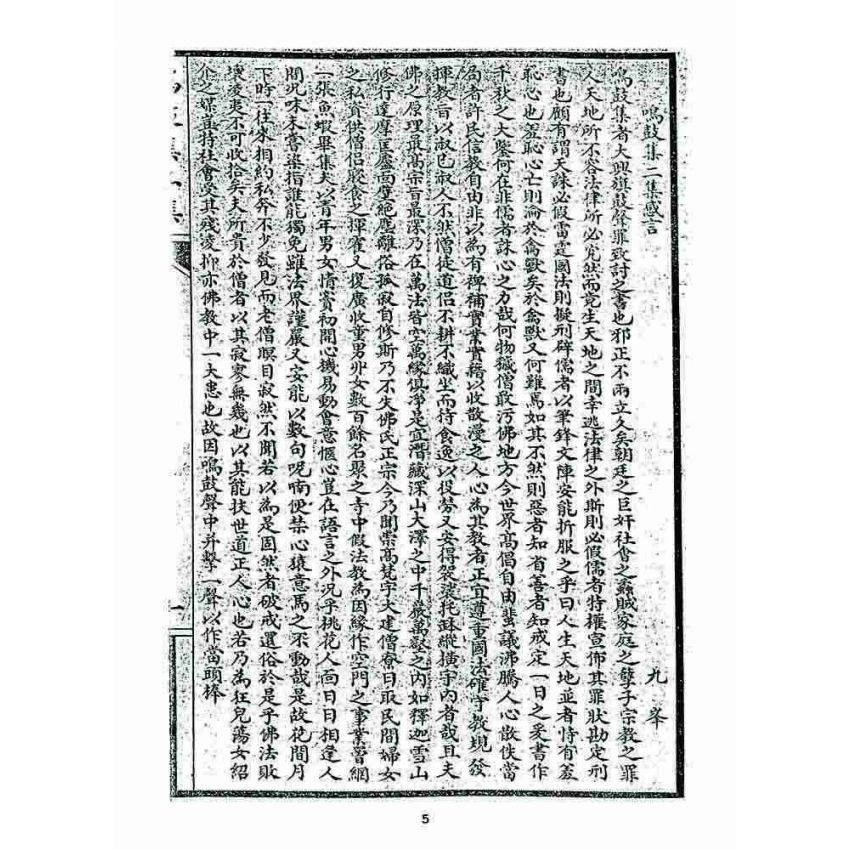 鳴鼓集二集感言
九峯
鳴鼓集者大興旗鼓聲罪致討之書也邪正不兩立久矣朝廷之巨奸社會之蟊賊家庭之孽子宗教之罪
人天地所不容法律所必究然而竟生天地之間幸逃法律之外斯則必假儒者特權宣佈其罪狀勘定刑
書也顧有謂天誅必假雷霆國法則擬刑碑儒者以筆鋒文陣安能折服之乎曰人生天地並者恃有羞
恥心也羞恥心亡則淪於禽獸矣於禽獸又何難焉如其不然則惡者知省善者知戒定一日之爰書作
千秋之大鑒何在非儒者誅心之力哉何物孽僧敢污佛地方今世界高倡自由蜚議沸騰人心散佚當
局者許民信教自由非以為有裨補實業實藉以收散漫之人心為其教者正宜遵重國法確守教規發
揮教旨以淑己淑人不然僧徒道侶不耕不織坐而待食逸以役勞又安得袈裟托缽縱橫宇內者哉且夫
佛之原理最高宗旨最深乃在萬法皆空萬緣俱淨是宜潛藏深山大澤之中千巖萬壑之內如釋迦雪山
修行達摩匡廬面壁絕塵離俗孤寂自修斯乃不失佛氏正宗今乃聞崇高梵宇大建僧寮日取民間婦女
之私資供僧侶聚食之揮霍又復廣收童男丱女數百餘名聚之寺中假法教為因緣作空門之事業罾網
一張魚蝦畢集夫以青年男女情竇初開心機易動會意愜心豈在語言之外況乎桃花人面日日相逢人
間況味未嘗染指誰能獨免雖法界謹嚴又安能以數句呪喃便禁心猿意馬之不動哉是故花間月
下時一往來相約私奔不少發見而老僧瞑目寂然不聞若以為是固然者破戒還俗於是乎佛法敗
壞凌夷不可收拾矣夫所貴於僧者以其寂寥無幾也以其能扶世道正人心也若乃為狂兒蕩女紹
介之媒並持社會受其殘凌抑亦佛教中一大患也故因鳴鼓聲中并擊一聲以作當頭棒
5